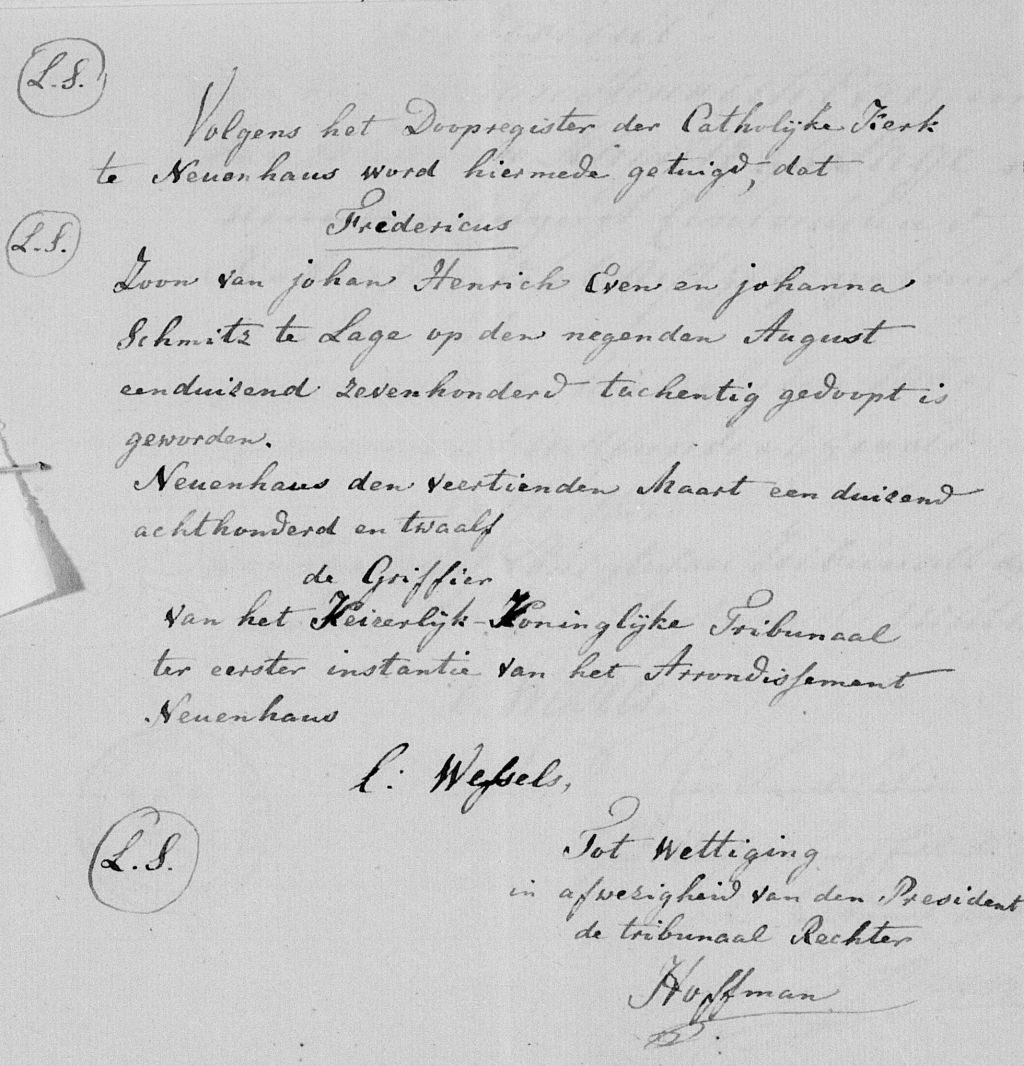 L.S.
Volgens het Doopregister der Catholijke Kerk
te Neuenhaus word hiermede getuigd, dat
Fridericus
L.S.
Zoon van johan Henrich Even en johanna
Schmitz te Lage op den negenden August
eenduizend zevenhonderd tachentig gedoopt is
geworden.
Neuenhaus den veertienden Maart een duizend
achthonderd en twaalf
de Griffier
van het Keizerlijk-Koninglijke Tribunaal
ter eerster instantie van het Arrondissement
Neuenhaus
C: Wessels,
L.S.
Tot Wettiging
in afwezigheid van den President
de tribunaal Rechter
Hoffman